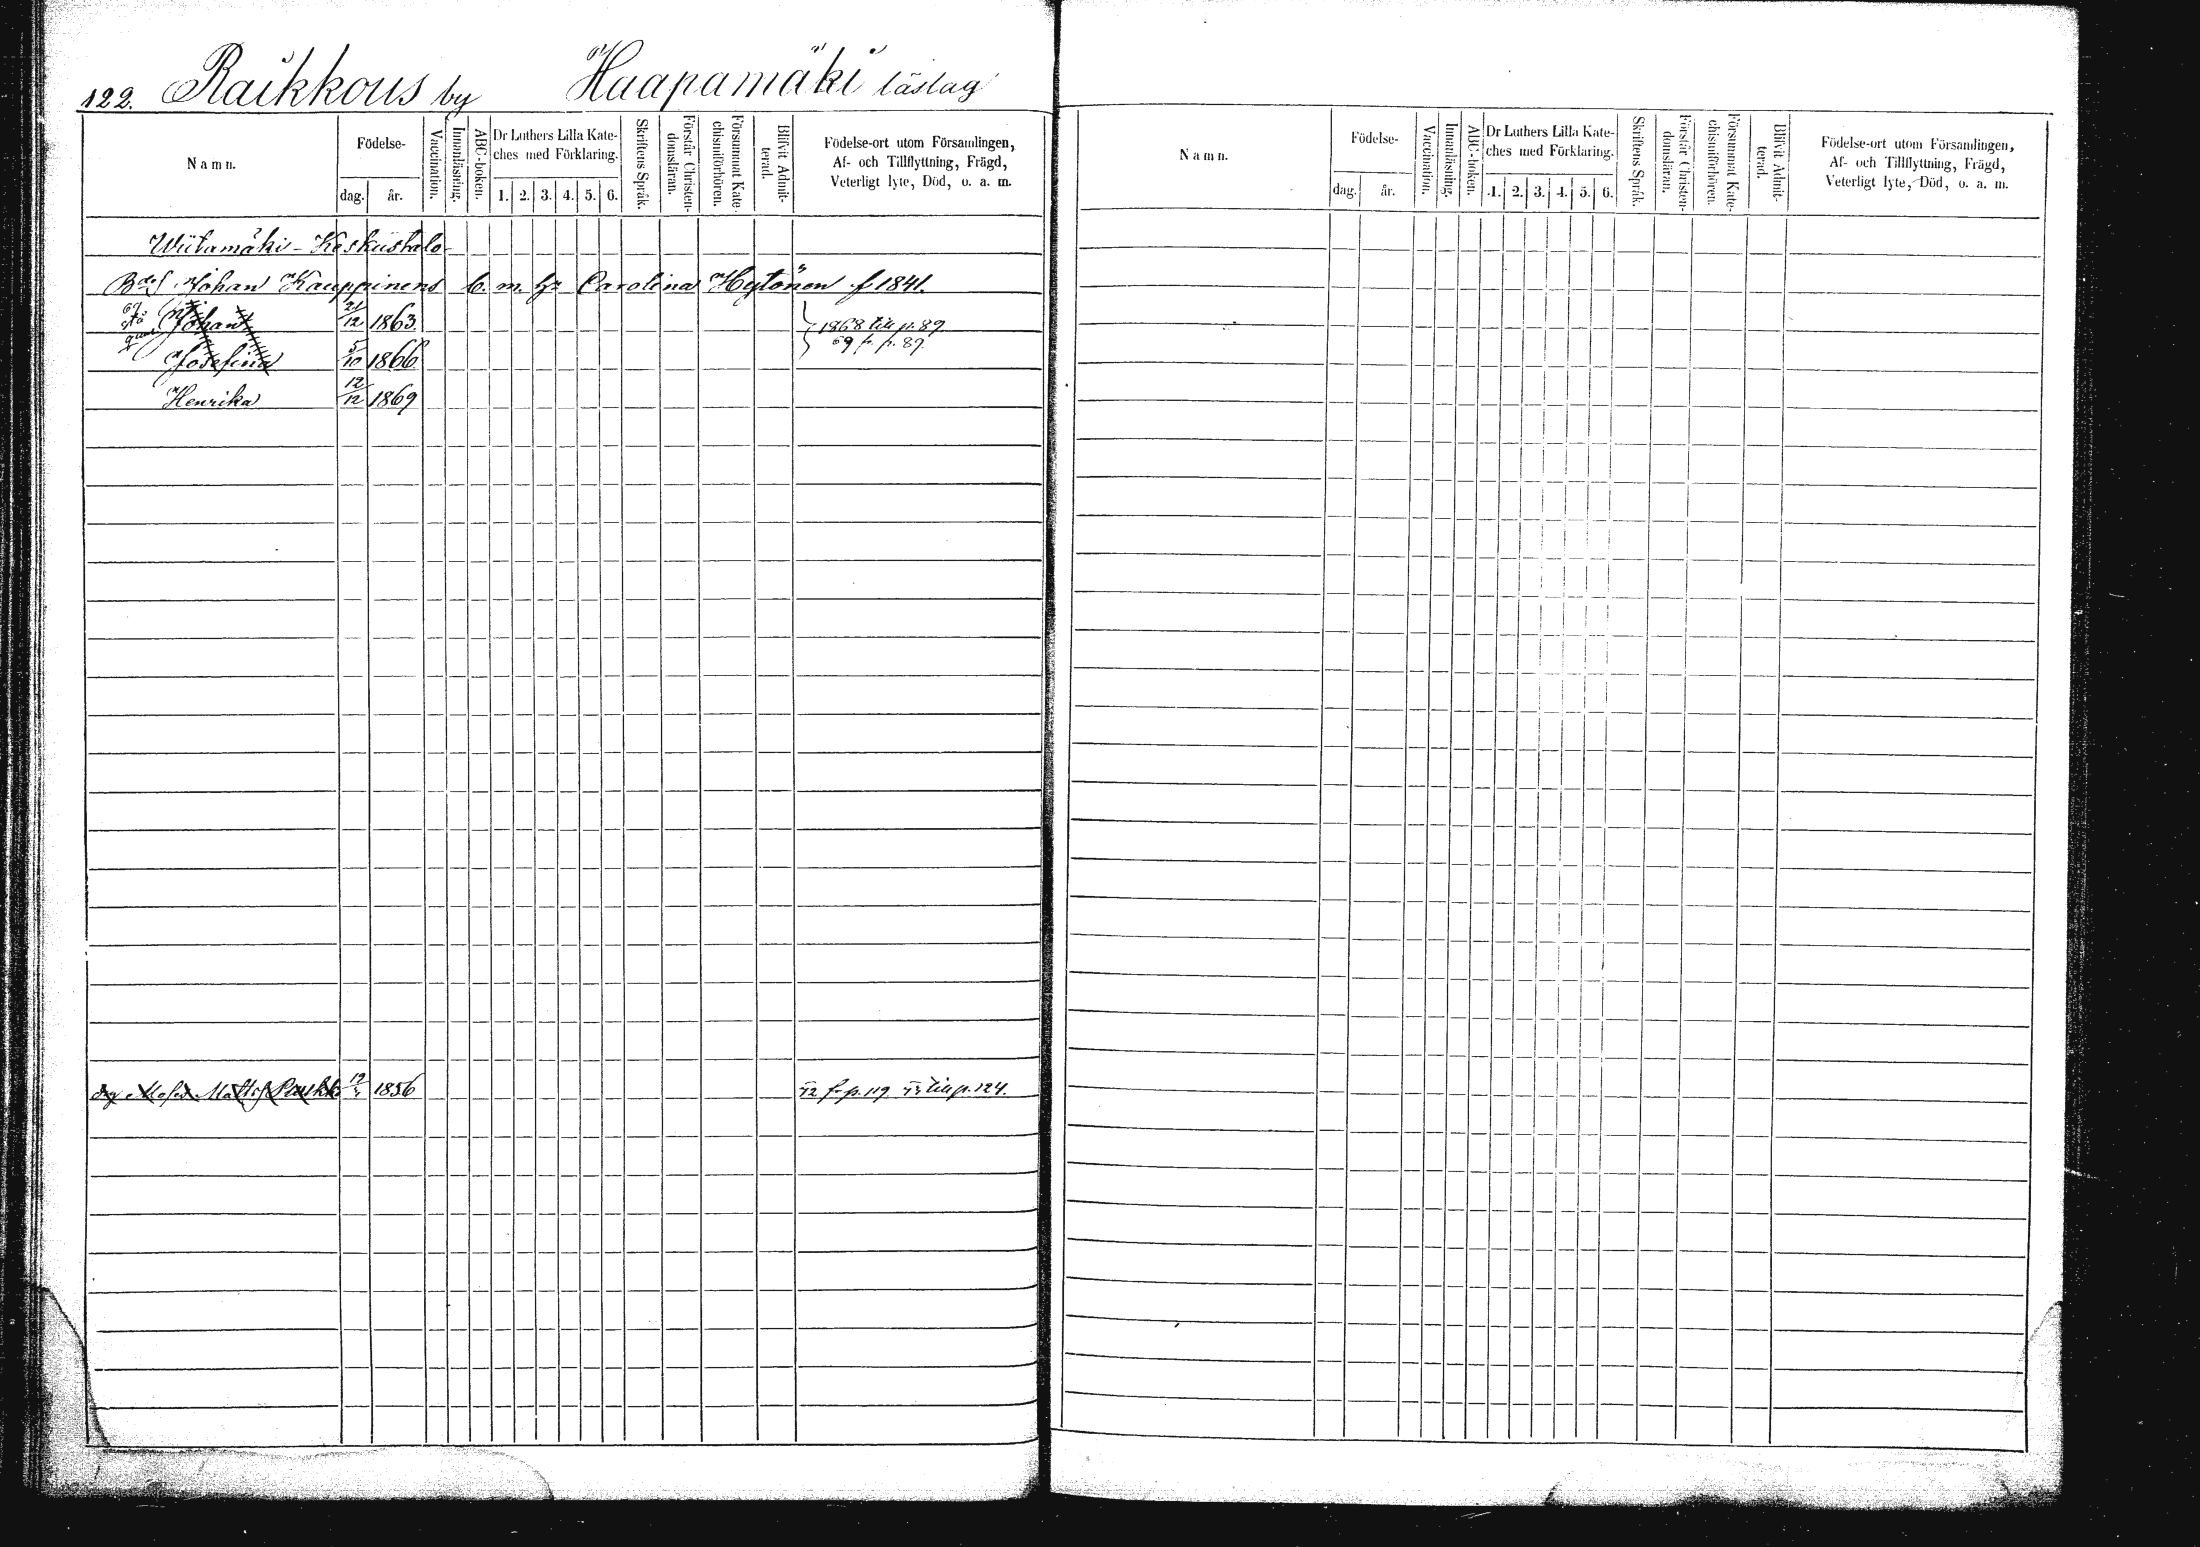 122. Raikkous by Haapamäki läslag
Namn.
Födelse-
dag. år.
Vaccination.
Innanläsning.
ABC-boken.
Dr Luthers Lilla Kate-
ches med Förklaring.
1. 2. 3. 4. 5. 6.
Skriftens Språk.
Förstår Christen-
domsläran.
Försummat Kate-
chismiförhören.
Blifvit Admit-
terad.
Födelse-ort utom Församlingen,
Af- och Tillflyttning, Frägd,
Veterligt lyte, Död, o. a. m.
Wiitamäki - Keskustalo
Johan Kauppinens b. m. hr Carolina Hytönen f 1841.
Johan 21/12 1863. 1868 till p. 89
69 fr. p. 89
Josefina 5/10 1866
Henrika 12/12 1869
Moses Matts 19 1856 72 fr p. 119 till p. 124.
Namn.
Födelse-
dag. år.
Vaccination.
Innanläsning.
ABC-boken.
Dr Luthers Lilla Kate-
ches med Förklaring.
1. 2. 3. 4. 5. 6.
Skriftens Språk.
Förstår Christen-
domsläran.
Försummat Kate-
chismiförhören.
Blifvit Admit-
terad.
Födelse-ort utom Församlingen,
Af- och Tillflyttning, Frägd,
Veterligt lyte, Död, o. a. m.